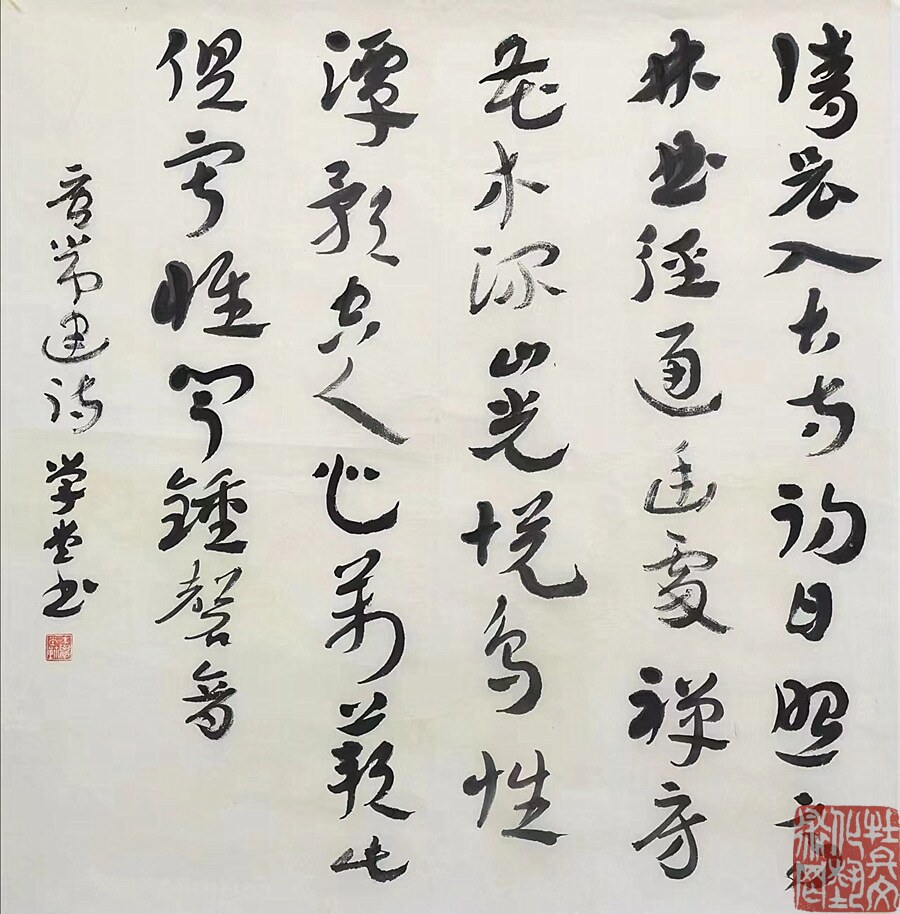 清晨入古寺初日照高
林曲徑通幽處禅房
花木深山光悦鸟性
潭影空人心萬籟此
俱寂惟聞鍾磬音
唐常建诗 学堂书